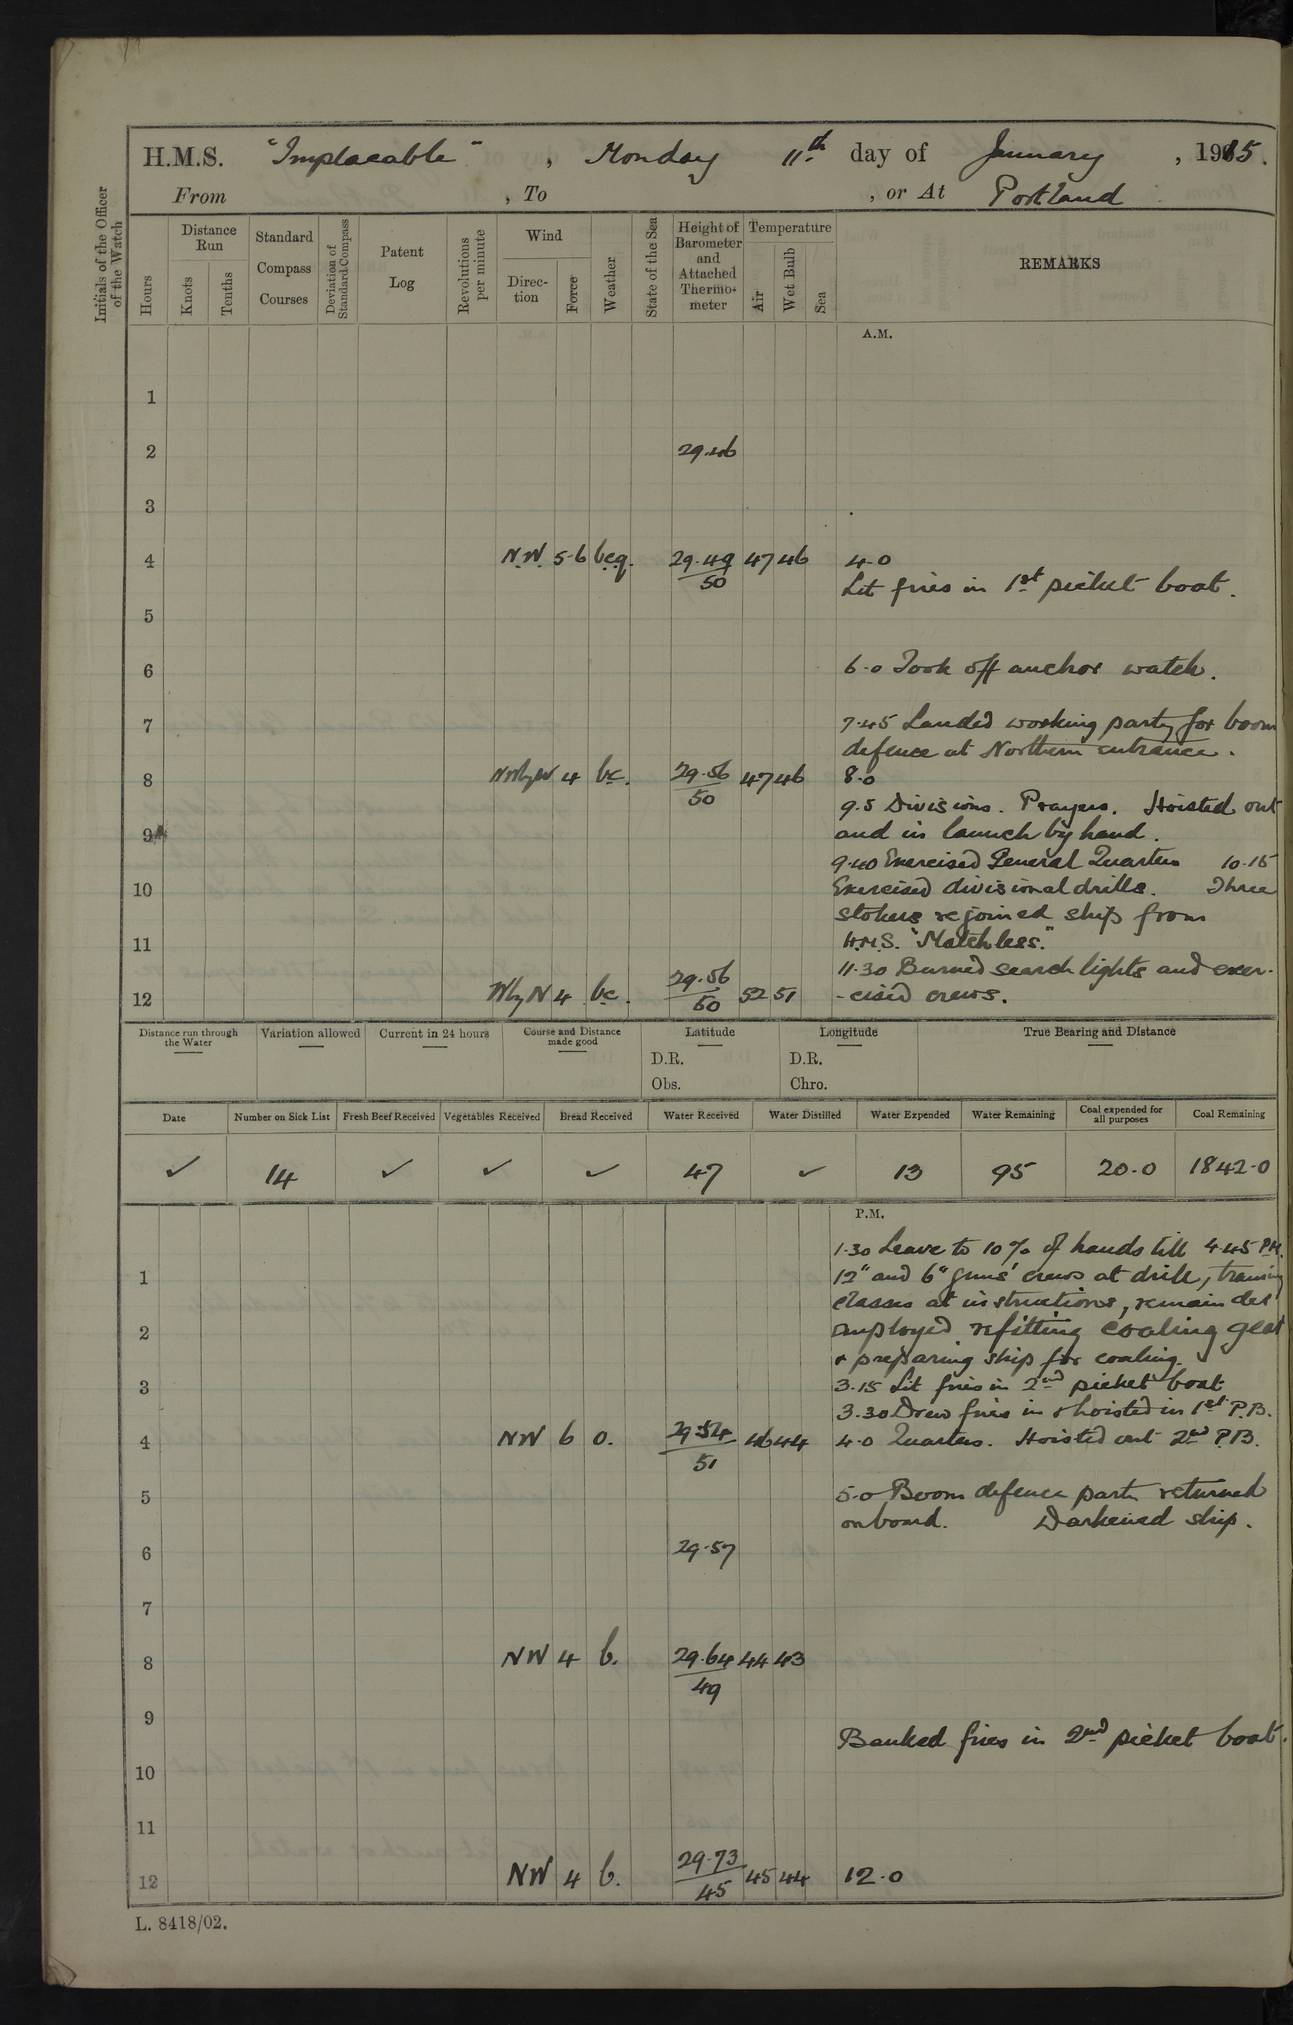 H.M.S. "Implacable", Monday 11th day of January, 1915.
From , To , or At Portland
Initials of the Officer of the Watch
Hours
Distance Run
Knots
Tenths
Standard Compass Courses
Deviation of Standard Compass
Patent Log
Revolutions per minute
Wind
Direction
Force
Weather
State of the Sea
Height of Barometer and Attached Thermometer
Temperature
Air
Wet Bulb
Sea
REMARKS
A.M.
1
2 29.46
3
4 N.W. 5-6 b.c.q. 29.49 47 46 4.0
50
Lit fires in 1st picket boat.
5
6 6.0 Took off anchor watch.
7 7.45 Landed working party for boom
defence at Northern entrance.
8 NWbyW 4 bc. 29.56 47 46 8.0
50
9.5 Divisions. Prayers. Hoisted out
9 and in launch by hand.
9.40 Exercised General Quarters 10.15
10 Exercised divisional drills. Three
stokers rejoined ship from
11 H.M.S. "Matchless."
11.30 Burned search lights and exer-
12 WbyN 4 bc. 29.56 52 51 -cised crews.
50
Distance run through the Water
Variation allowed
Current in 24 hours
Course and Distance made good
Latitude
D.R.
Obs.
Longitude
D.R.
Chro.
True Bearing and Distance
Date Number on Sick List Fresh Beef Received Vegetables Received Bread Received Water Received Water Distilled Water Expended Water Remaining Coal expended for all purposes Coal Remaining
✓ 14 ✓ ✓ ✓ 47 ✓ 13 95 20.0 1842.0
P.M.
1.30 Leave to 10% of hands till 4.45 P.M.
1 12" and 6" guns' crews at drill, training
classes at instructions, remainder
2 employed refitting coaling gear
& preparing ship for coaling.
3 3.15 Lit fires in 2nd picket boat
3.30 Drew fires in & hoisted in 1st P.B.
4 NW 6 o. 29.54 46 44 4.0 Quarters. Hoisted out 2nd P.B.
51
5 5.0 Boom defence party returned
onboard. Darkened ship.
6 29.57
7
8 NW 4 b. 29.64 44 43
49
9
Banked fires in 2nd picket boat.
10
11
12 NW 4 b. 29.73 45 44 12.0
45
L. 8418/02.